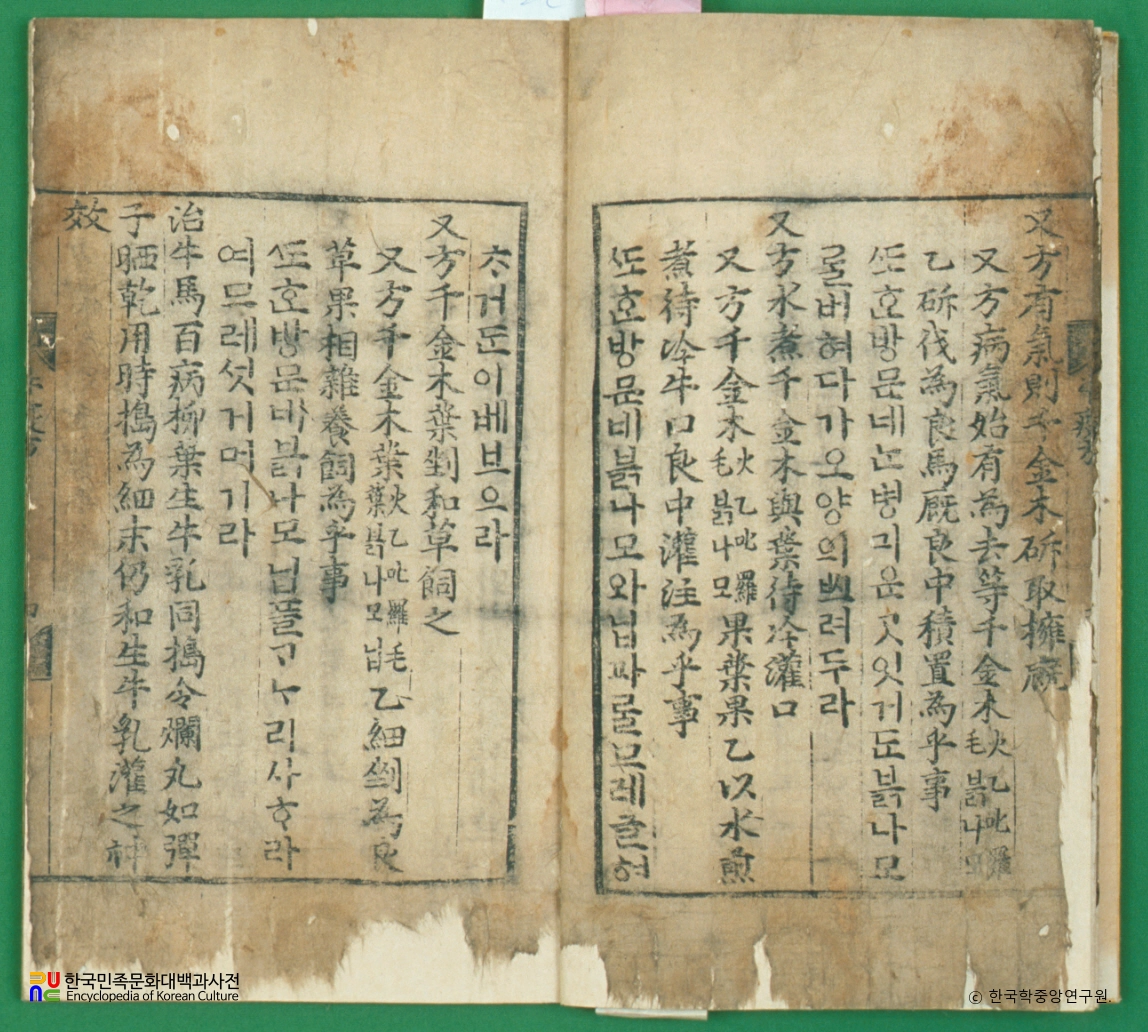 又方有氣則千金木斫取擁廐
又方病氣始有爲去等千金木火乙叱羅毛붉나모
乙斫伐爲良馬厩良中積置爲乎事
ᄯᅩᄒᆞᆫ방문네ᄂᆞᆫ병긔운곳잇거든븕나모
ᄅᆞᆯ버혀다가오양의ᄲᅳ려두라
又方水煮千金木與葉待冷灌口
又方千金木火乙叱羅毛붉나모果葉果乙以水煎
煮待冷牛口良中灌注爲乎事
ᄯᅩᄒᆞᆫ방문네븕나모와닙과ᄅᆞᆯ므레글혀
ᄎᆞ거든이베브으라
又方千金木葉剉和草飼之
又方千金木葉火乙叱羅毛葉붉나모닙乙細剉爲良
草果相雜養飼爲乎事
ᄯᅩᄒᆞᆫ방문네븕나모닙플
여므레섯거머기라
治牛馬百病柳葉生牛乳同搗令爛丸如彈
子晒乾用時搗爲細末仍和生牛乳灌之神
效
한국민족문화대백과사전
Encyclopedia of Korean Culture
ⓒ 한국학중앙연구원